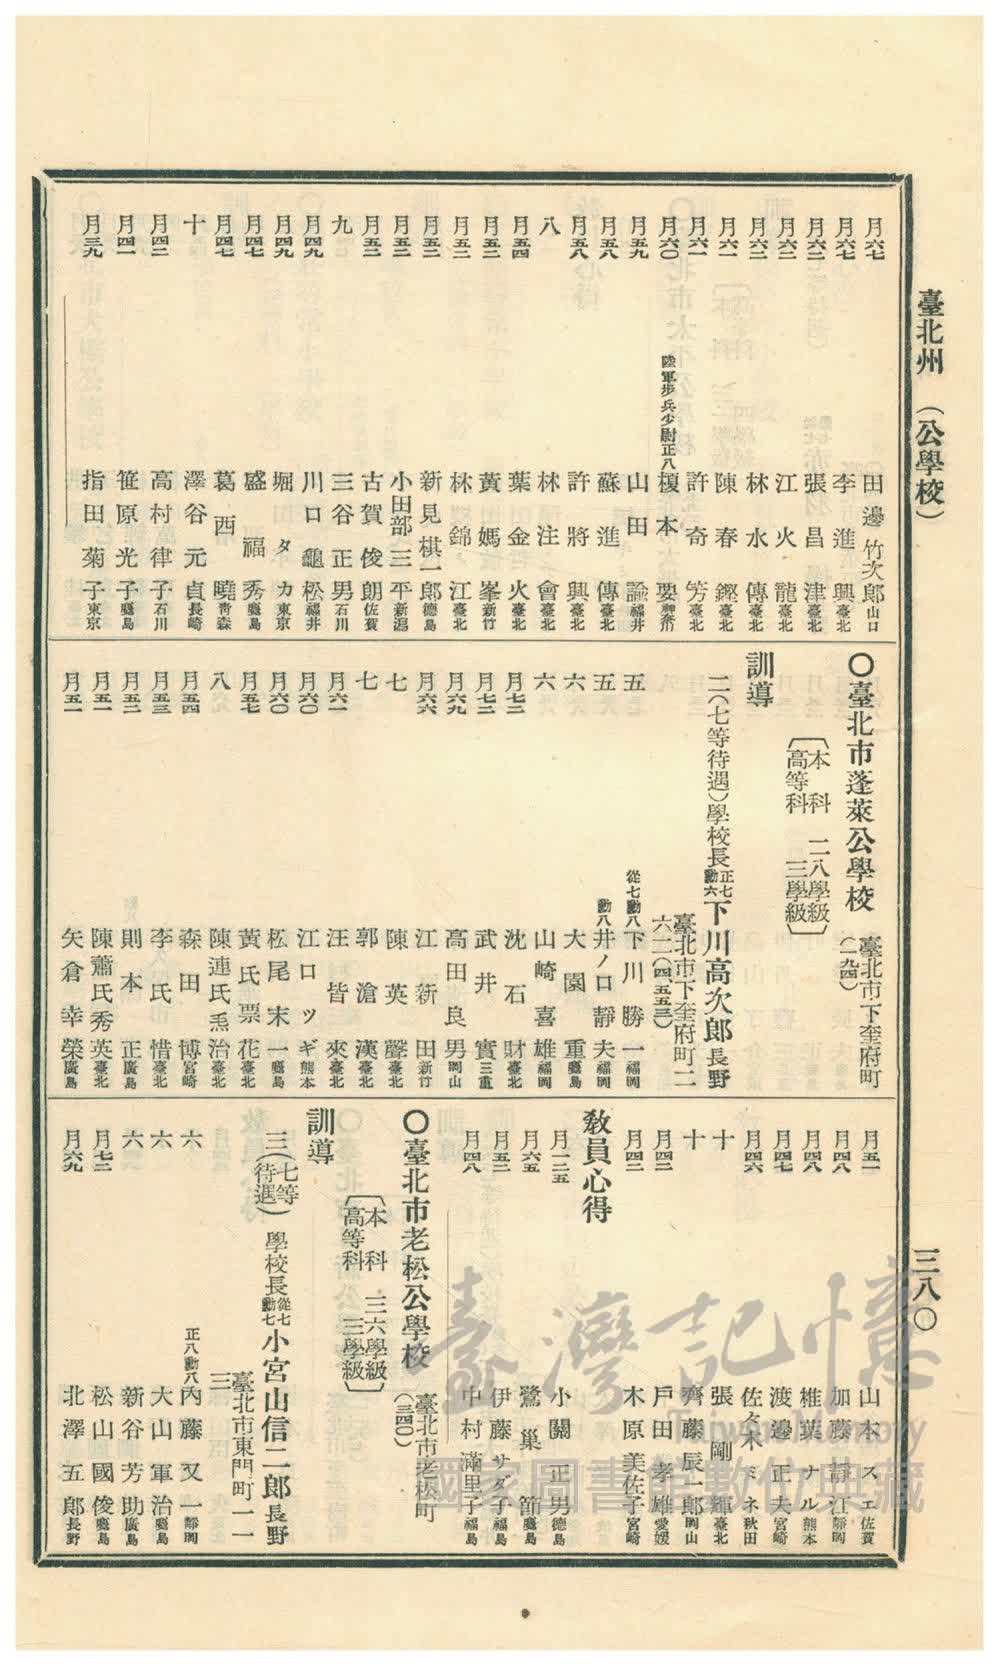 臺北州 (公學校)
三八〇
月六七 田邊竹次郎 山口
月六七 李進興 臺北
月六二 張昌津 臺北
月六二 江火龍 臺北
月六二 林水傳 臺北
月六一 陳春鏗 臺北
月六一 許奇芳 臺北
月六〇 陸軍步兵少尉正八 榎本要 神奈川
月五九 山田諭 福井
月五八 蘇進傳 臺北
月五八 許將興 臺北
八 林注會 臺北
月五四 葉金火 臺北
月五三 黃媽峯 新竹
月五三 林錦江 臺北
月五三 新見棋一郎 德島
月五三 小田部三平 新潟
月五二 古賀俊朗 佐賀
九 三谷正男 石川
月四九 川口龜松 福井
月四九 堀タカ 東京
月四七 盛福秀 鹿兒島
月四七 葛西曉 青森
十 澤谷元貞 長崎
月四二 高村律子 石川
月四一 笹原光子 鹿兒島
月三九 指田菊子 東京
〇臺北市蓬萊公學校 臺北市下奎府町(一九四)
本科 二八學級
高等科 三學級
訓導
二(七等待遇)學校長 正七勳六 下川高次郎 長野
臺北市下奎府町二
六二(四五五三)
五 從七勳八 下川勝一 福岡
五 勳八 井ノ口靜夫 福岡
六 大園重 鹿兒島
六 山崎喜雄 福岡
月七二 沈石財 臺北
月七二 武井實 三重
月六九 高田良男 岡山
月六六 江新田 新竹
七 陳英聲 臺北
七 郭滄漢 臺北
月六一 汪皆來 臺北
月六〇 江口ツギ 熊本
月六〇 松尾末一 鹿兒島
月五七 黃氏票花 臺北
八 陳連氏𤆬治 臺北
月五四 森田博 宮崎
月五三 李氏惜 臺北
月五二 則本正 廣島
月五一 陳蕭氏秀英 臺北
月五一 矢倉幸榮 廣島
月五一 山本スエ 佐賀
月四八 加藤靜江 靜岡
月四八 椎葉ナル 熊本
月四七 渡邊正夫 宮崎
月四六 佐々木ミネ 秋田
十 張剛輝 臺北
十 齊藤辰一郎 岡山
月四二 戶田孝雄 愛媛
月四二 木原美佐子 宮崎
教員心得
月一二五 小關正男 德島
月六五 鷺巢節 鹿兒島
月五二 伊藤サダ子 福島
月四八 中村滿里子 福島
〇臺北市老松公學校 臺北市老松町(三四〇)
本科 三六學級
高等科 三學級
訓導
三(七等待遇) 學校長 從七勳七 小宮山信二郎 長野
臺北市東門町一一
三
六 正八勳八 內藤又一 靜岡
六 大山軍治 鹿兒島
六 新谷芳助 廣島
月七二 松山國俊 鹿兒島
月六九 北澤五郎 長野
臺灣記憶
Taiwan Memory
國家圖書館數位典藏